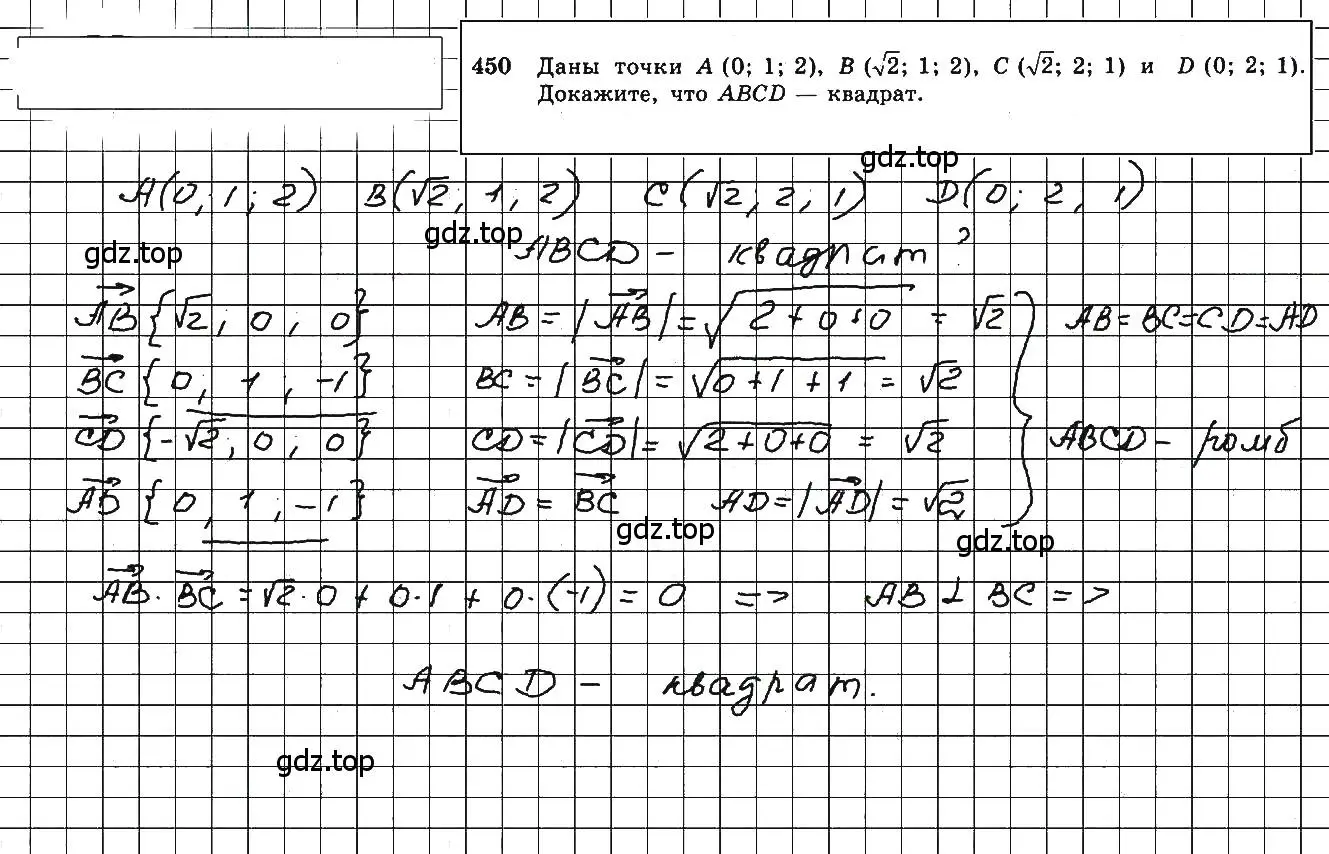 450 Даны точки A (0; 1; 2), B (√2; 1; 2), C (√2; 2; 1) и D (0; 2; 1).
Докажите, что ABCD — квадрат.
gdz.top
A(0; 1; 2) B(√2; 1; 2) C(√2; 2; 1) D(0; 2; 1)
gdz.top
ABCD – квадрат ?
gdz.top
AB {√2; 0; 0} AB = |AB| = √2+0+0 = √2 AB=BC=CD=AD
BC {0; 1; -1} BC = |BC| = √0+1+1 = √2
CD {-√2; 0; 0} CD = |CD| = √2+0+0 = √2 ABCD – ромб
AD {0; 1; -1} AD = BC AD = |AD| = √2
gdz.top
gdz.top
AB · BC = √2·0 + 0·1 + 0·(-1) = 0 => AB ⊥ BC =>
ABCD – квадрат.
gdz.top